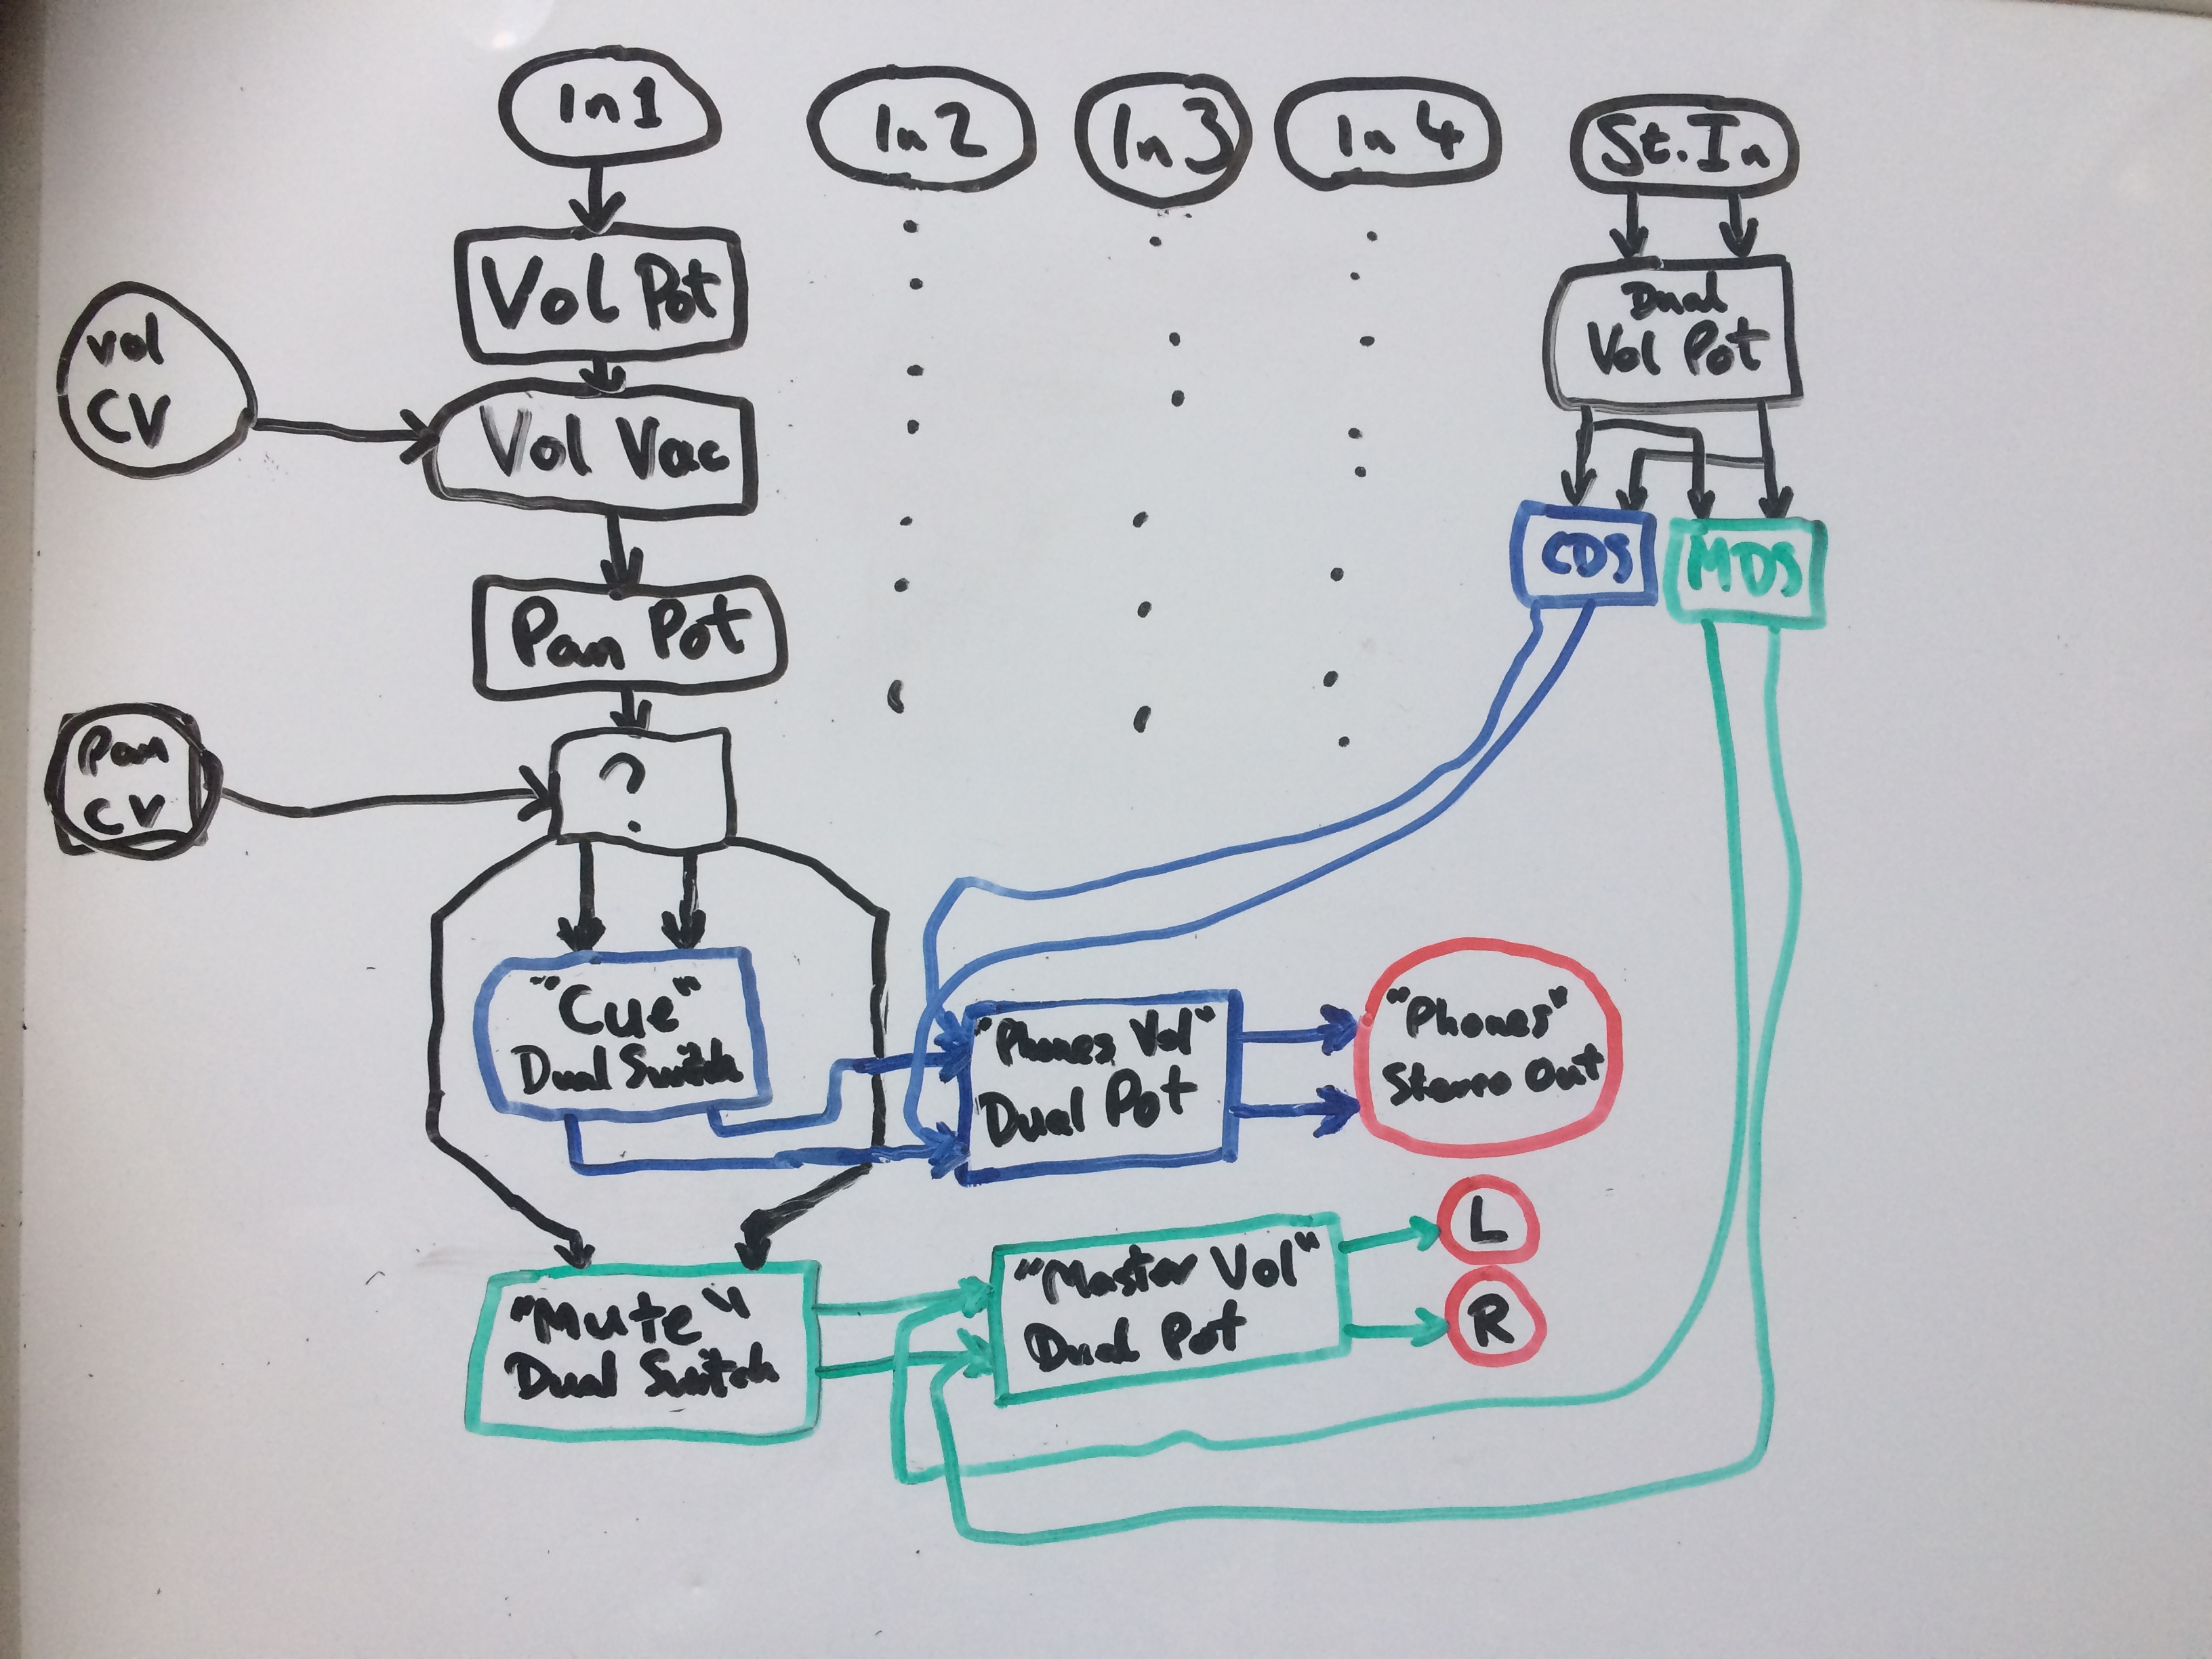 In 1
In 2
In 3
In 4
St. In
Vol Pot
Dual
Vol Pot
vol
CV
Vol Vac
CDS
MDS
Pan Pot
Pan
CV
?
"Cue"
Dual Switch
"Phones Vol"
Dual Pot
"Phones"
Stereo Out
"Mute"
Dual Switch
"Master Vol"
Dual Pot
L
R